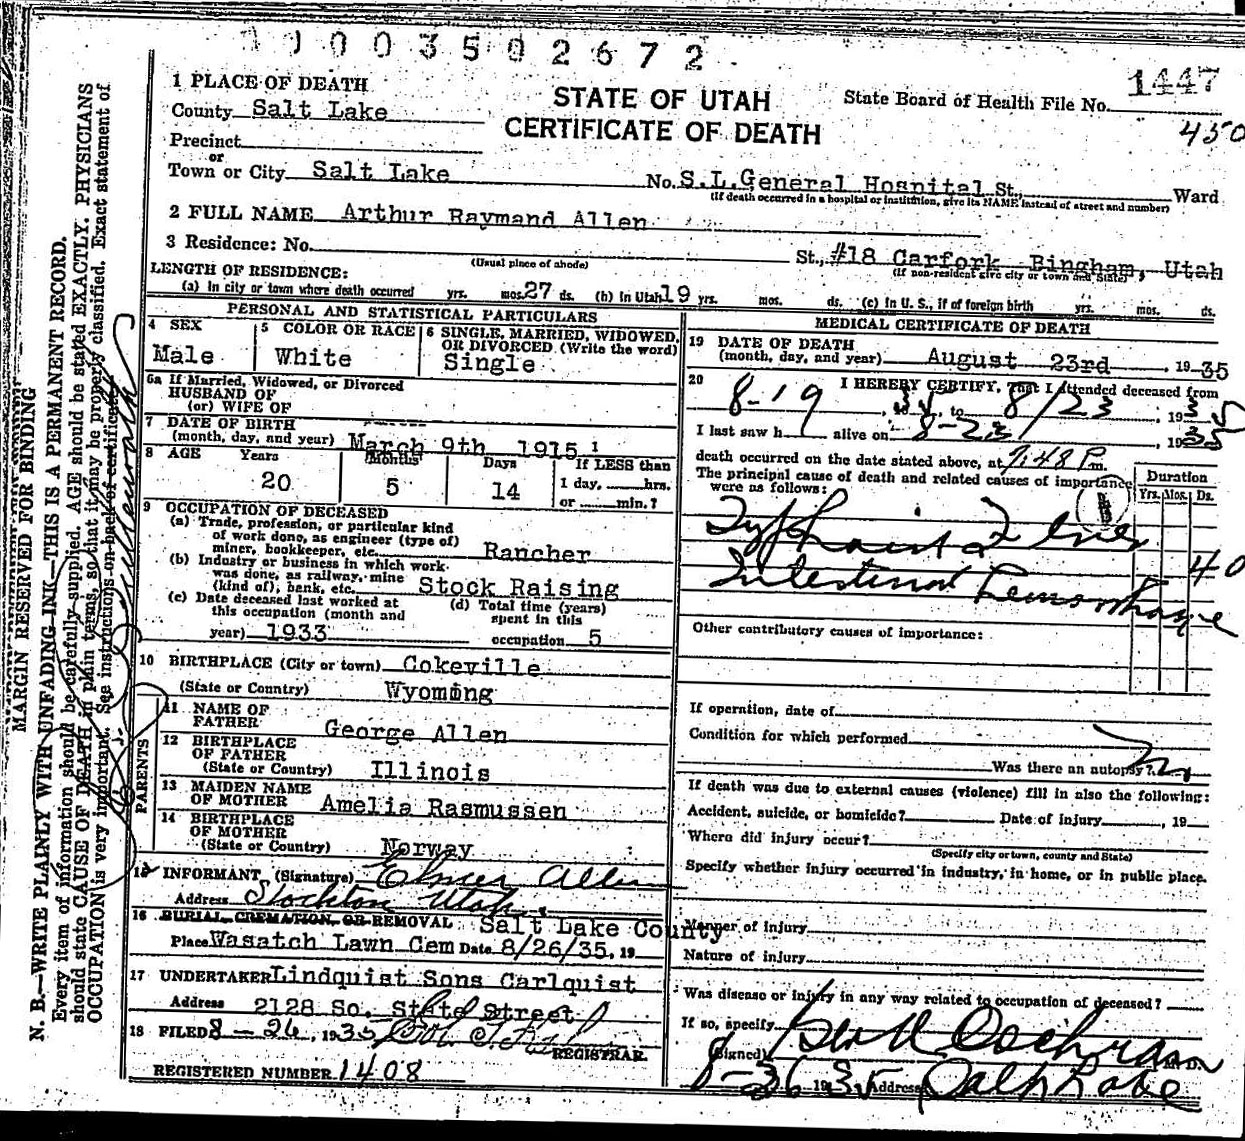 1 0 0 3 5 0 2 6 7 2
1447
450
1 PLACE OF DEATH
STATE OF UTAH
CERTIFICATE OF DEATH
State Board of Health File No.
County Salt Lake
Precinct
or
Town or City Salt Lake No. S.L.General Hospital St., Ward
(If death occurred in a hospital or institution, give its NAME instead of street and number)
2 FULL NAME Arthur Raymand Allen
3 Residence: No. St., #18 Carfork Bingham, Utah
(Usual place of abode) (If non-resident give city or town and State)
LENGTH OF RESIDENCE:
(a) In city or town where death occurred yrs. mos. 27 ds. (b) In Utah 19 yrs. mos. ds. (c) in U. S., if of foreign birth yrs. mos. ds.
PERSONAL AND STATISTICAL PARTICULARS
4 SEX 5 COLOR OR RACE 6 SINGLE, MARRIED, WIDOWED,
OR DIVORCED (Write the word)
Male White Single
6a If Married, Widowed, or Divorced
HUSBAND OF
(or) WIFE OF
7 DATE OF BIRTH
(month, day, and year) March 9th 1915
8 AGE Years Months Days If LESS than
20 5 14 1 day, hrs.
or min.?
9 OCCUPATION OF DECEASED
(a) Trade, profession, or particular kind
of work done, as engineer (type of)
miner, bookkeeper, etc. Rancher
(b) Industry or business in which work
was done, as railway, mine
(kind of), bank, etc. Stock Raising
(c) Date deceased last worked at (d) Total time (years)
this occupation (month and spent in this
year) 1933 occupation 5
10 BIRTHPLACE (City or town) Cokeville
(State or Country) Wyoming
PARENTS
11 NAME OF
FATHER George Allen
12 BIRTHPLACE
OF FATHER
(State or Country) Illinois
13 MAIDEN NAME
OF MOTHER Amelia Rasmussen
14 BIRTHPLACE
OF MOTHER
(State or Country) Norway
15 INFORMANT (Signature) Elmer Allen
Address Stockton Utah.
16 BURIAL, CREMATION, OR REMOVAL Salt Lake County
Place Wasatch Lawn Cem Date 8/26/35, 19
17 UNDERTAKER Lindquist Sons Carlquist
Address 2128 So. State Street
18 FILED 8-26, 1935
REGISTRAR
REGISTERED NUMBER 1408
MEDICAL CERTIFICATE OF DEATH
19 DATE OF DEATH
(month, day, and year) August 23rd, 1935
20 I HEREBY CERTIFY, That I attended deceased from
8-19, to 8/23, 1935
I last saw h alive on 8-23, 1935
death occurred on the date stated above, at 7:48 P m.
The principal cause of death and related causes of importance
were as follows:
Duration
Yrs. Mos. Ds.
Typhoid Fever
40
Intestinal Hemorrhage
Other contributory causes of importance:
If operation, date of
Condition for which performed
Was there an autopsy?
If death was due to external causes (violence) fill in also the following:
Accident, suicide, or homicide? Date of injury, 19
Where did injury occur?
(Specify city or town, county and State)
Specify whether injury occurred in industry, in home, or in public place.
Manner of injury
Nature of injury
Was disease or injury in any way related to occupation of deceased?
If so, specify
(Signed) Cochran M.D.
8-26 1935 Address Salt Lake
MARGIN RESERVED FOR BINDING
N. B.—WRITE PLAINLY WITH UNFADING INK—THIS IS A PERMANENT RECORD.
Every item of information should be carefully supplied. AGE should be stated EXACTLY. PHYSICIANS
should state CAUSE OF DEATH in plain terms, so that it may be properly classified. Exact statement of
OCCUPATION is very important. See instructions on back of certificate.